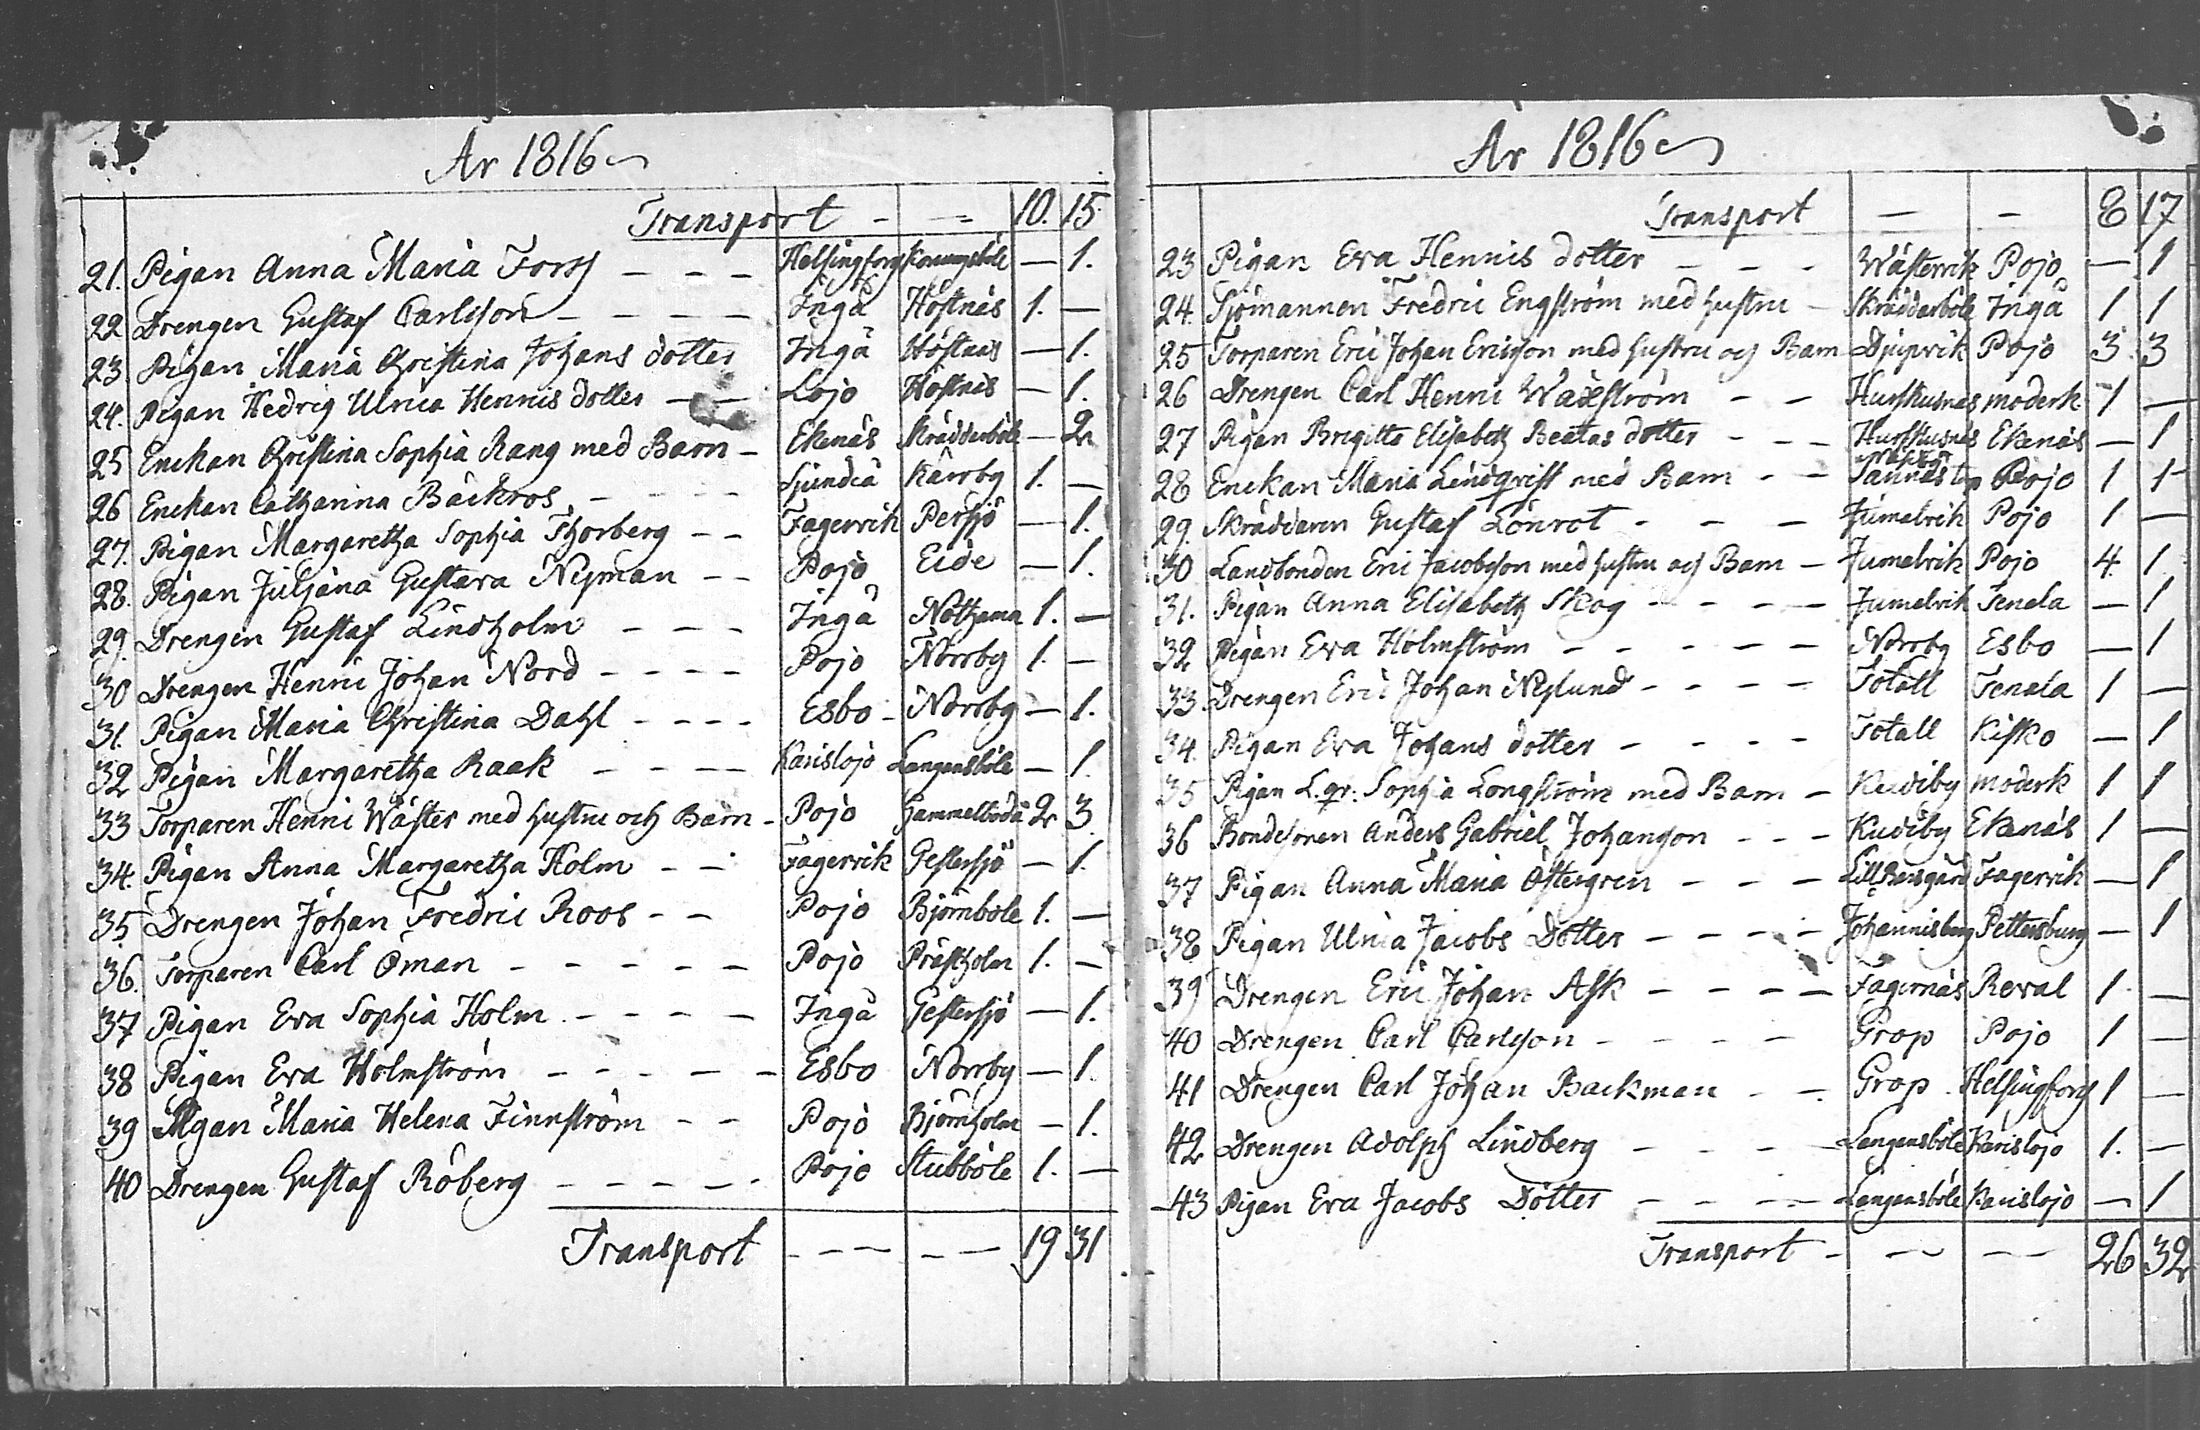 År 1816
Transport - - 10. 15.
21. Pigan Anna Maria Forss - - - Helsingfors Konungsböle — 1.
22 Drengen Gustaf Carlsson - - - - Ingå Höstnäs 1. —
23. Pigan Maria Christina Johans dotter Ingå Höstnäs — 1.
24. Pigan Hedvig Ulrica Henrics dotter - - Lojo Höstnäs — 1.
25 Enckan Christina Sophia Rang med Barn - Ekenäs Skrädderböle — 2
26 Enckan Catharina Bäckros - - - - Sjundeå Kärrby 1. —
27. Pigan Margaretha Sophia Thorberg - - Fagervik Persjö — 1.
28. Pigan Juljana Gustava Nyman - - Pojo Eide — 1.
29. Drengen Gustaf Lindholm - - - Ingå Nothama 1. —
30 Drengen Henric Johan Nord - - - - Pojo Norrby 1. —
31. Pigan Maria Christina Dahl - - - - Esbo - Norrby — 1.
32 Pigan Margaretha Raak - - - - Karislojo Langansböle — 1.
33 Torparen Henric Wäster med hustru och Barn - Pojo Gammelboda 2 3
34. Pigan Anna Margaretha Holm - - Fagervik Gestersjö — 1.
35 Drengen Johan Fredric Roos - - Pojo Björnböle 1. —
36. Torparen Carl Öman - - - - - Pojo Prästholm 1. —
37 Pigan Eva Sophia Holm - - - - Ingå Gestersjö — 1.
38 Pigan Eva Holmström - - - - - Esbo Norrby — 1.
39 Pigan Maria Helena Finnström - - Pojo Björnholm — 1.
40 Drengen Gustaf Röberg - - - - - Pojo Stubböle 1. —
Transport - - - - - 19 31
År 1816
Transport — - 8 17
23 Pigan Eva Henrics dotter - - - Wästervik Pojo — 1
24. Sjömannen Fredric Engström med hustru - Skrädderböle Ingå 1 1
25 Torparen Eric Johan Ericsson med hustru och Barn Djupvik Pojo 3 3
26 Drengen Carl Henric Waxström - - Hurskusnäs moderk. 1 —
27 Pigan Brigitta Elisabeth Beatas dotter - - - Hurskusnäs Ekenäs — 1
28 Enckan Maria Lindqvist med Barn - - Sannäs Pojo 1 1
29. Skräddaren Gustaf Lönrot - - - Jumalvik Pojo 1 —
30 Landbonden Eric Jacobsson med hustru och Barn - Jumalvik Pojo 4. 1
31. Pigan Anna Elisabeth Skog - - - - Jumalvik Tenala — 1
32 Pigan Eva Holmström - - - - - Norrby Esbo — 1
33 Drengen Eric Johan Nylund - - - - Totall Tenala 1 —
34. Pigan Eva Johans dotter - - - - Totall Kisko — 1
35 Pigan L.qv: Sophia Longström med Barn - Kudiby moderk 1 1
36 Bondesonen Anders Gabriel Johansson - - - Kudiby Ekenäs 1 —
37 Pigan Anna Maria Östergren - - - Fagervik — 1
38. Pigan Ulrica Jacobs Dotter - - - - Johannisberg Pettersburg — 1
39 Drengen Eric Johan Ask - - - - Fagernäs Reval 1. —
40 Drengen Carl Carlsson - - - - Grop Pojo 1 —
41 Drengen Carl Johan Backman - - Grop Helsingfors 1 —
42 Drengen Adolph Lindberg - - - - Langansböle Karislojo 1. —
43 Pigan Eva Jacobs Dotter - - - - Langansböle Karislojo — 1
Transport - - - - - 26 32